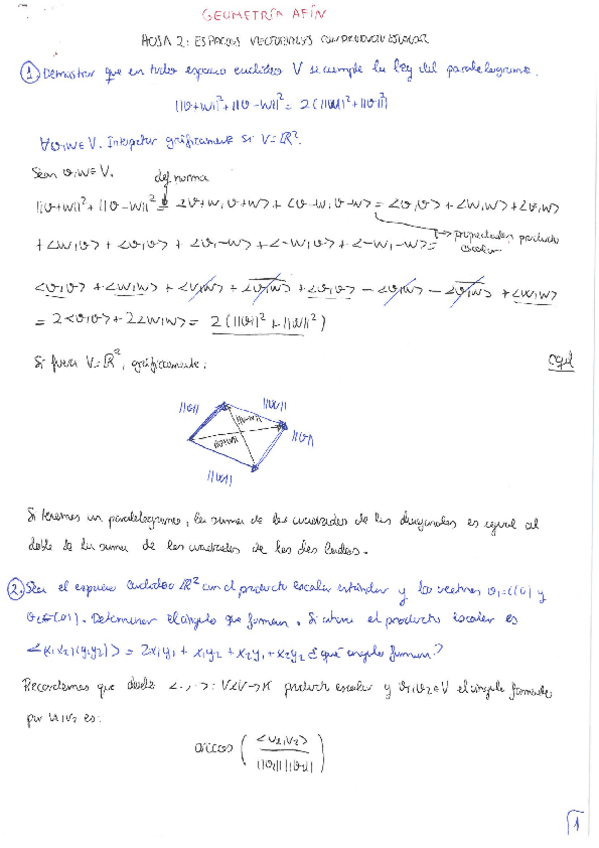 GEOMETRÍA AFÍN
HOJA 2: ESPACIOS VECTORIALES CON PRODUCTO ESCALAR
① Demostrar que en todo espacio euclídeo V se cumple la ley del paralelogramo.
||v+w||² + ||v-w||² = 2(||w||² + ||v||²)
∀v,w∈V. Interpretar gráficamente si V=ℝ².
Sean v,w∈V.
def norma
||v+w||² + ||v-w||² = <v+w,v+w> + <v-w,v-w> = <v,v> + <w,w> + <v,w>
propiedades producto escalar
+ <w,v> + <v,v> + <v,-w> + <-w,v> + <-w,-w> =
<v,v> + <w,w> + <v,w> + <v,w> + <v,v> - <v,w> - <v,w> + <w,w>
= 2<v,v> + 2<w,w> = 2(||v||² + ||w||²)
Si fuera V=ℝ², gráficamente:
cqd
||v|| ||w||
||v-w||
||v+w|| ||v||
||w||
Si tenemos un paralelogramo, la suma de los cuadrados de las diagonales es igual al
doble de la suma de los cuadrados de los dos lados.
② Sea el espacio euclídeo ℝ² con el producto escalar estándar y los vectores v₁=(1,0) y
v₂=(0,1). Determinar el ángulo que forman. Si ahora el producto escalar es
<(x₁,x₂)(y₁,y₂)> = 2x₁y₁ + x₁y₂ + x₂y₁ + x₂y₂ ¿qué ángulo forman?
Recordemos que dado <·,·>: V×V→K producto escalar y v₁,v₂∈V el ángulo formado
por v₁,v₂ es:
arccos ( <v₁,v₂> / ||v₁|| ||v₂|| )
1